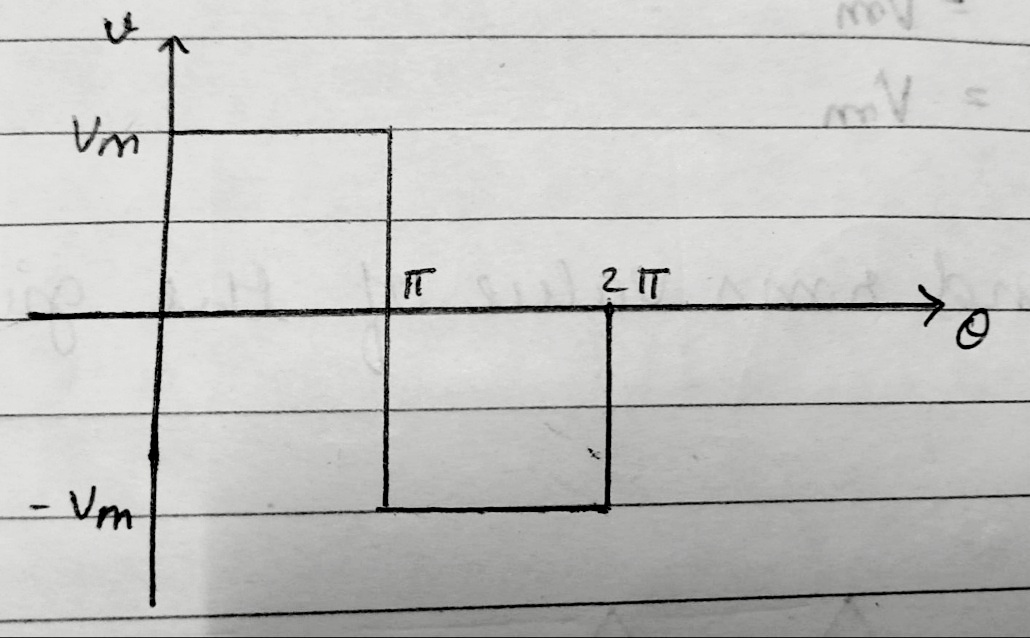 v
Vm
π
2π
θ
- Vm